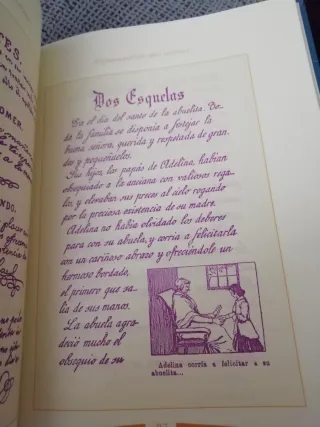 Dos Esquelas
Era el día del santo de la abuelita. To-
da la familia se disponía a festejar la
buena señora, querida y respetada de gran-
des y pequeñuelos.
Sus hijos, los papás de Adelina, habían
obsequiado a la anciana con valiosos rega-
los, y elevaban sus preces al cielo rogando
por la preciosa existencia de su madre.
Adelina no había olvidado los deberes
para con su abuela, y corría a felicitarla
con un cariñoso abrazo y ofreciéndole un
hermoso bordado,
el primero que sa-
lía de sus manos.
La abuela agra-
deció mucho el
obsequio de su
Adelina corría a felicitar a su
abuelita...